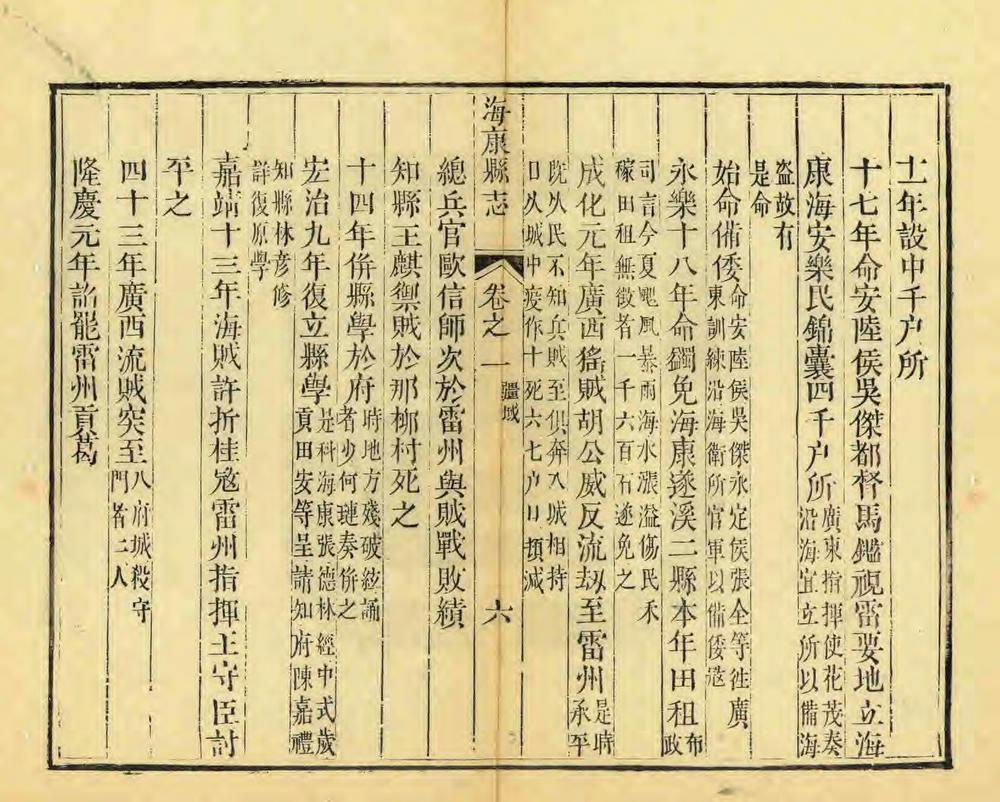 十一年設中千户所
十七年命安陸侯吳傑都督馬鑑視雷要地立海
康海安樂民錦囊四千户所廣東指揮使花茂奏沿海宜立所以備海
盗故有是命
始命備倭命安陸侯吳傑永定侯張全等徃廣東訓練沿海衛所官軍以備倭寇
永樂十八年命蠲免海康遂溪二縣本年田租布政
司言今夏颶風暴雨海水漲溢傷民禾稼田租無徵者一千六百石遂免之
成化元年廣西猺賊胡公威反流刼至雷州是時承平
既久民不知兵賊至俱奔入城相持日久城中疫作十死六七户口頓減
海康縣志 卷之一 疆域 六
總兵官歐信師次於雷州與賊戰敗績
知縣王麒禦賊於那柳村死之
十四年併縣學於府時地方殘破絃誦者少何璉奏併之
宏治九年復立縣學是科海康張德林經中式歲貢田安等呈請知府陳嘉禮
知縣林彦修詳復原學
嘉靖十三年海賊許折桂寇雷州指揮王守臣討
平之
四十三年廣西流賊突至入府城殺守門者二人
隆慶元年詔罷雷州貢葛